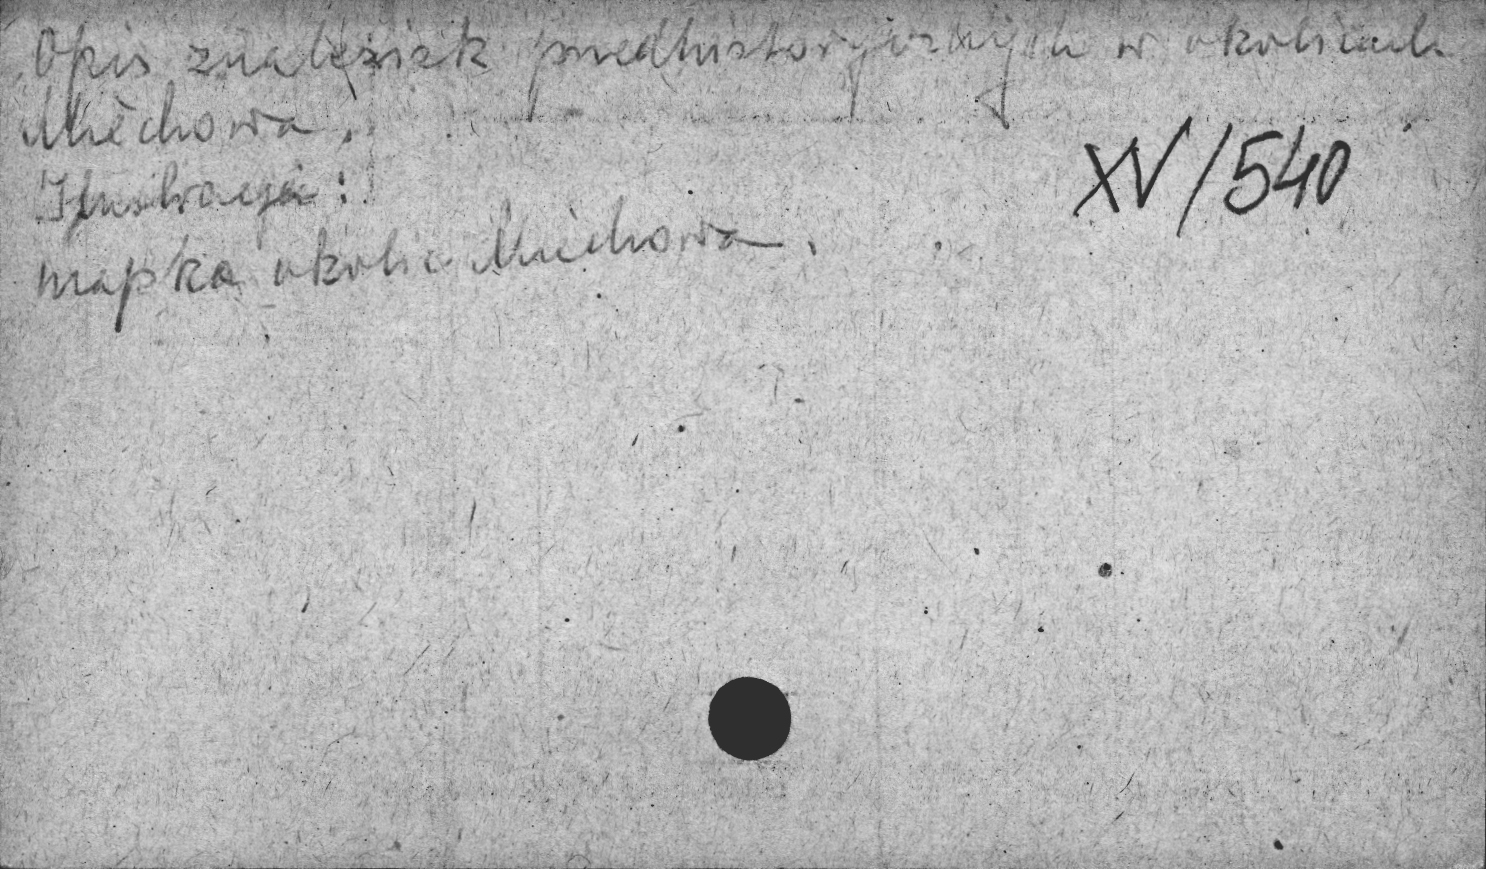 Opis znalezisk przedhistorycznych w okolicach
Miechowa.
Ilustracja:
mapka okolic Miechowa.
XV/540